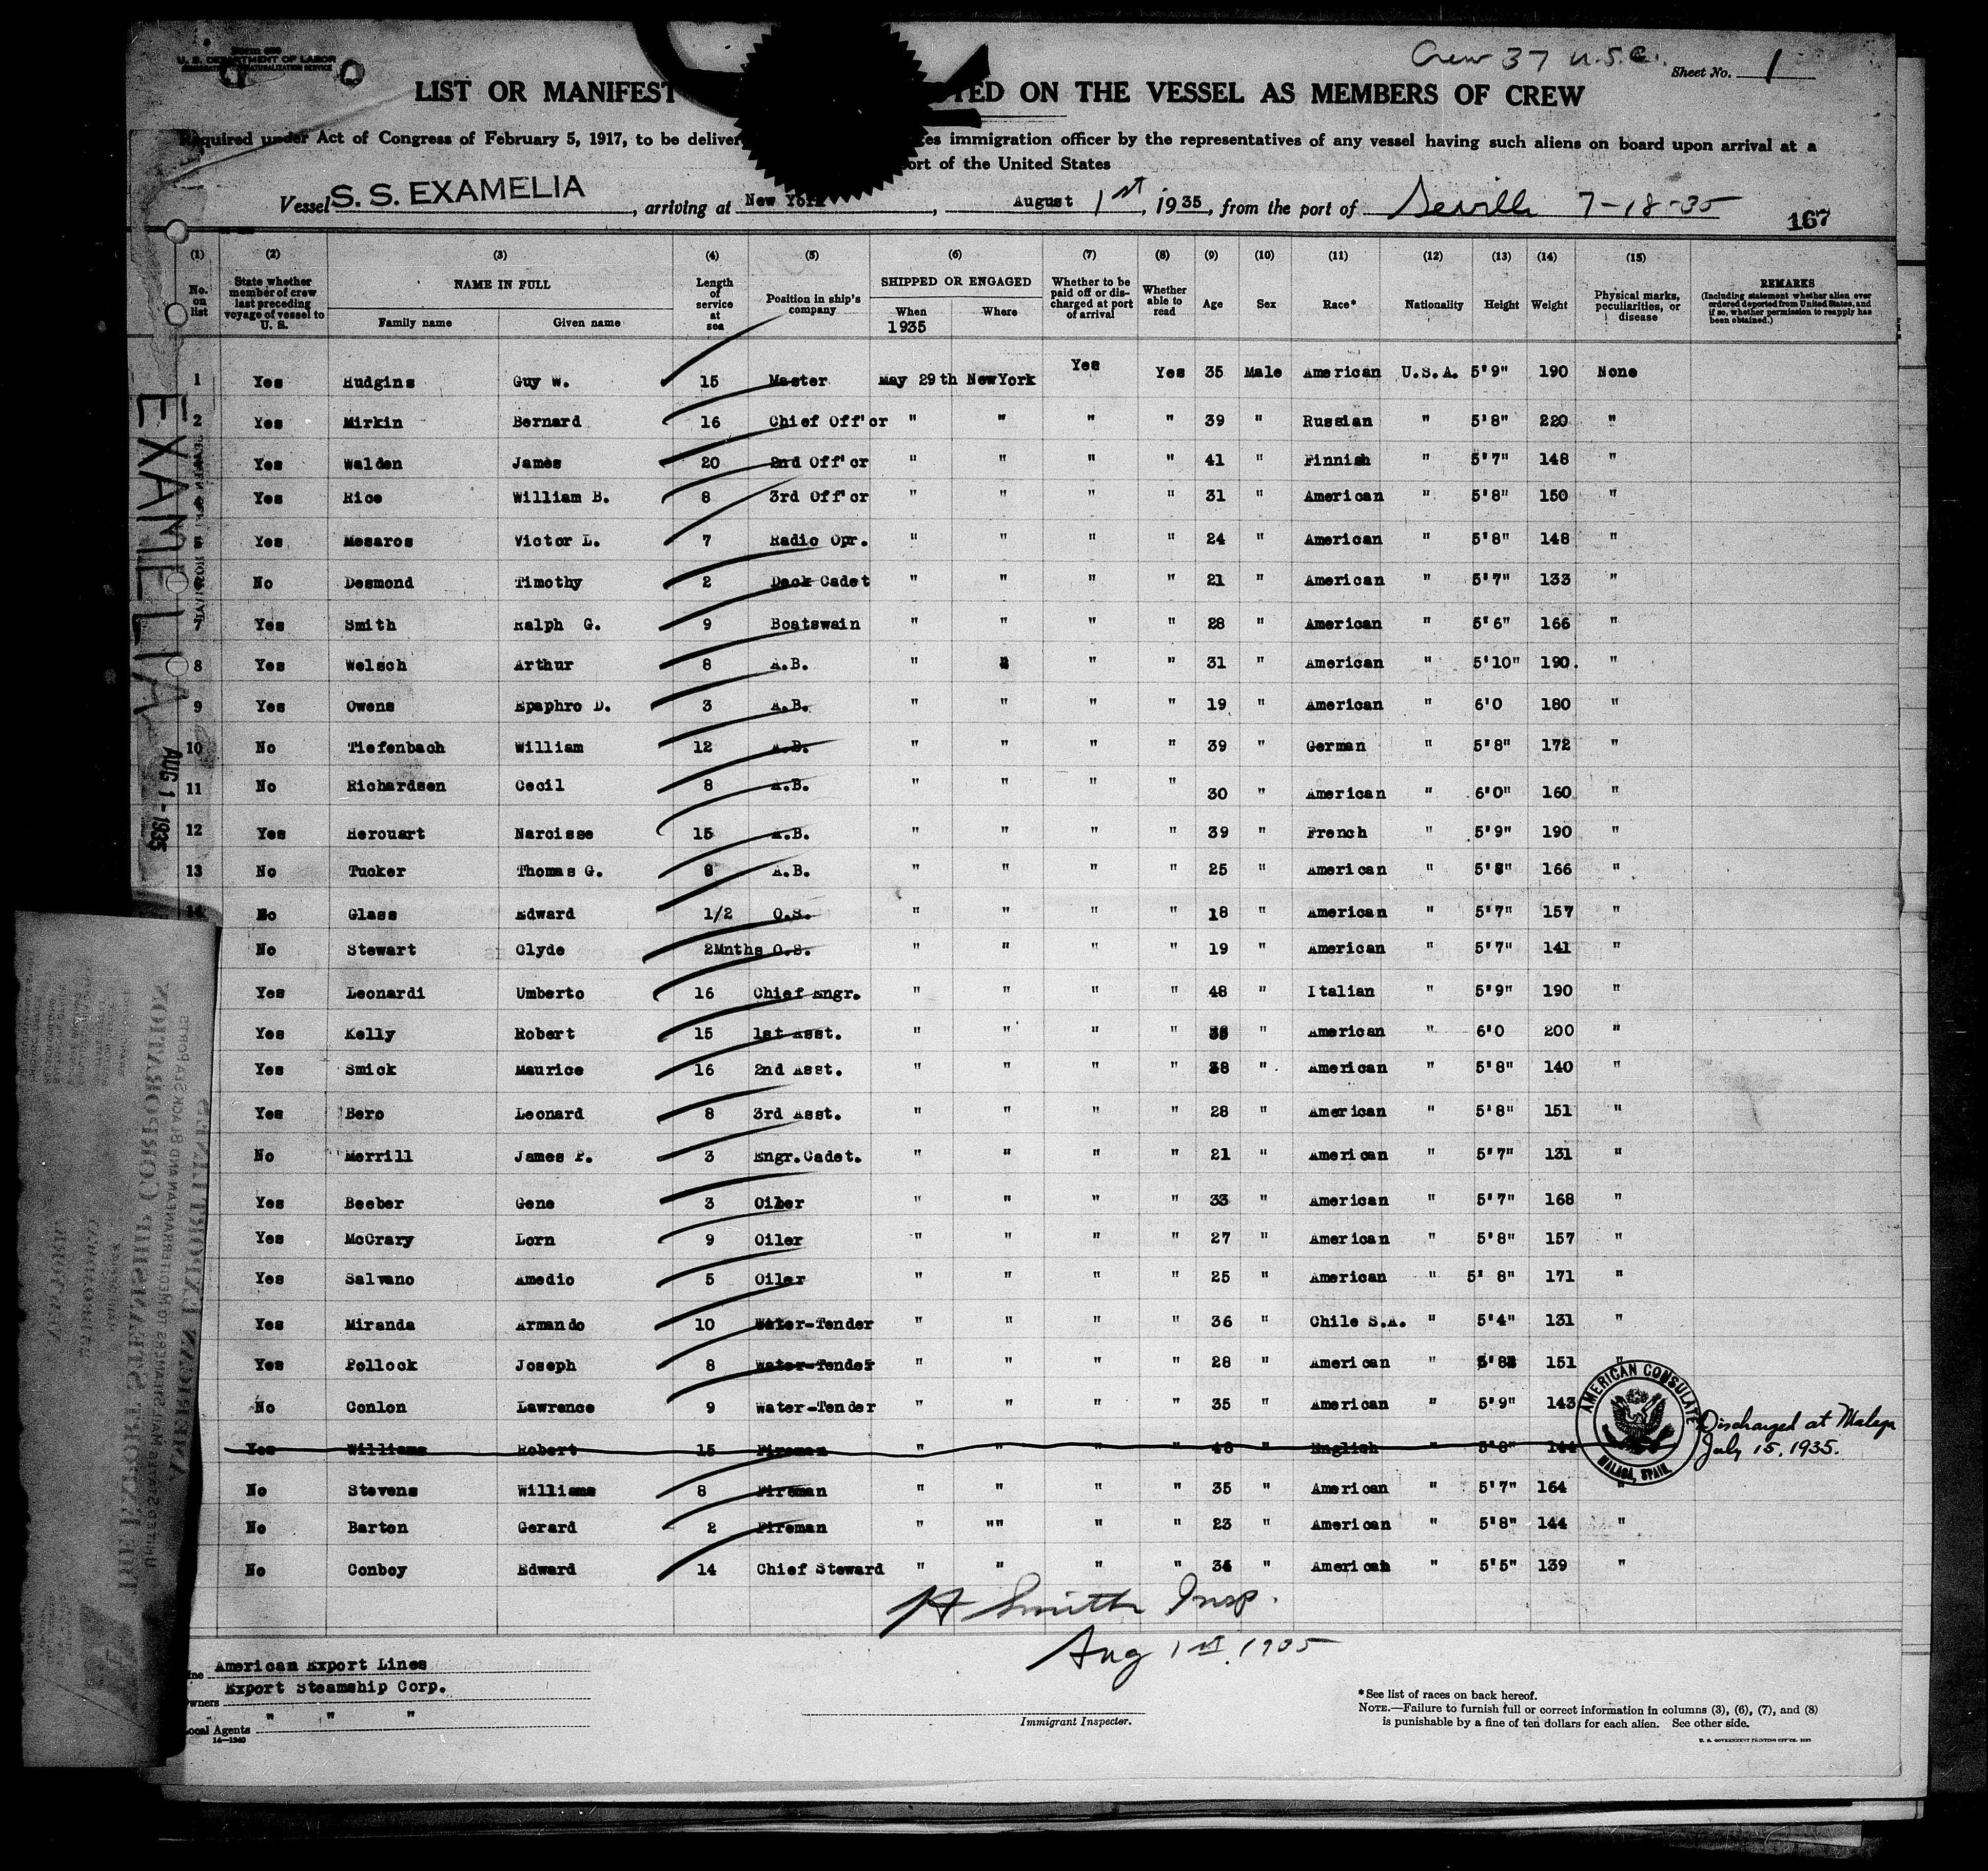 Form 689
U. S. DEPARTMENT OF LABOR
Crew 37 U.S.C.
Sheet No. 1
LIST OR MANIFEST TED ON THE VESSEL AS MEMBERS OF CREW
Required under Act of Congress of February 5, 1917, to be deliver tes immigration officer by the representatives of any vessel having such aliens on board upon arrival at a
ort of the United States
Vessel S. S. EXAMELIA, arriving at New York, August 1st, 1935, from the port of Seville 7-18-35
167
(1) (2) (3) (4) (5) (6) (7) (8) (9) (10) (11) (12) (13) (14) (15)
No. on list State whether member of crew last preceding voyage of vessel to U. S. NAME IN FULL Family name Given name Length of service at sea Position in ship's company SHIPPED OR ENGAGED When 1935 Where Whether to be paid off or discharged at port of arrival Whether able to read Age Sex Race* Nationality Height Weight Physical marks, peculiarities, or disease REMARKS (Including statement whether alien ever ordered deported from United States, and if so, whether permission to reapply has been obtained.)
1 Yes Hudgins Guy W. 15 Master May 29th NewYork Yes Yes 35 Male American U.S.A. 5'9" 190 None
2 Yes Mirkin Bernard 16 Chief Off'cr " " " " 39 " Russian " 5'8" 220 "
Yes Walden James 20 2nd Off'cr " " " " 41 " Finnish " 5'7" 148 "
Yes Rice William B. 8 3rd Off'cr " " " " 31 " American " 5'8" 150 "
Yes Mesaros Victor L. 7 Radio Opr. " " " " 24 " American " 5'8" 148 "
No Desmond Timothy 2 Deck Cadet " " " " 21 " American " 5'7" 133 "
7 Yes Smith Ralph G. 9 Boatswain " " " " 28 " American " 5'6" 166 "
8 Yes Welsch Arthur 8 A.B. " " " " 31 " American " 5'10" 190. "
9 Yes Owens Epaphro D. 3 A.B. " " " " 19 " American " 6'0 180 "
10 No Tiefenbach William 12 A.B. " " " " 39 " German " 5'8" 172 "
11 No Richardsen Cecil 8 A.B. " " " " 30 " American " 6'0" 160 "
12 Yes Herouart Narcisse 15 A.B. " " " " 39 " French " 5'9" 190 "
13 No Tucker Thomas G. A.B. " " " " 25 " American " 5'8" 166 "
14 No Glass Edward 1/2 O.S. " " " " 18 " American " 5'7" 157 "
No Stewart Clyde 2Mnths O.S. " " " " 19 " American " 5'7" 141 "
Yes Leonardi Umberto 16 Chief Engr. " " " " 48 " Italian " 5'9" 190 "
Yes Kelly Robert 15 1st Asst. " " " " " American " 6'0 200 "
Yes Smick Maurice 16 2nd Asst. " " " " 38 " American " 5'8" 140 "
Yes Bero Leonard 8 3rd Asst. " " " " 28 " American " 5'8" 151 "
No Merrill James P. 3 Engr.Cadet. " " " " 21 " American " 5'7" 131 "
Yes Beeber Gene 3 Oiler " " " " 33 " American " 5'7" 168 "
Yes McCrary Lorn 9 Oiler " " " " 27 " American " 5'8" 157 "
Yes Salvano Amedio 5 Oiler " " " " 25 " American " 5' 8" 171 "
Yes Miranda Armando 10 Water-Tender " " " " 36 " Chile S.A. " 5'4" 131 "
Yes Pollock Joseph 8 Water-Tender " " " " 28 " American " 5'8" 151 "
No Conlon Lawrence 9 Water-Tender " " " " 35 " American " 5'9" 143
Yes Williams Robert 15 Fireman " " " " 48 " English " 5'8" 144
AMERICAN CONSULATE
MALAGA, SPAIN.
Discharged at Malaga
July 15, 1935.
No Stevens Williams 8 Fireman " " " " 35 " American " 5'7" 164 "
No Barton Gerard 2 Fireman " "" " " 23 " American " 5'8" 144 "
No Conboy Edward 14 Chief Steward " " " " 34 " American " 5'5" 139 "
H Smith Insp.
Aug 1st, 1935
ine American Export Lines
wners Export Steamship Corp.
ocal Agents " " "
14—1240
Immigrant Inspector.
*See list of races on back hereof.
NOTE.—Failure to furnish full or correct information in columns (3), (6), (7), and (8)
is punishable by a fine of ten dollars for each alien. See other side.
U. S. GOVERNMENT PRINTING OFFICE
EXAMELIA
AUG 1 - 1935
AMERICAN EXPORT LINES
UNITED STATES MAIL STEAMERS TO MEDITERRANEAN AND BLACK SEA PORTS
THE EXPORT STEAMSHIP CORPORATION